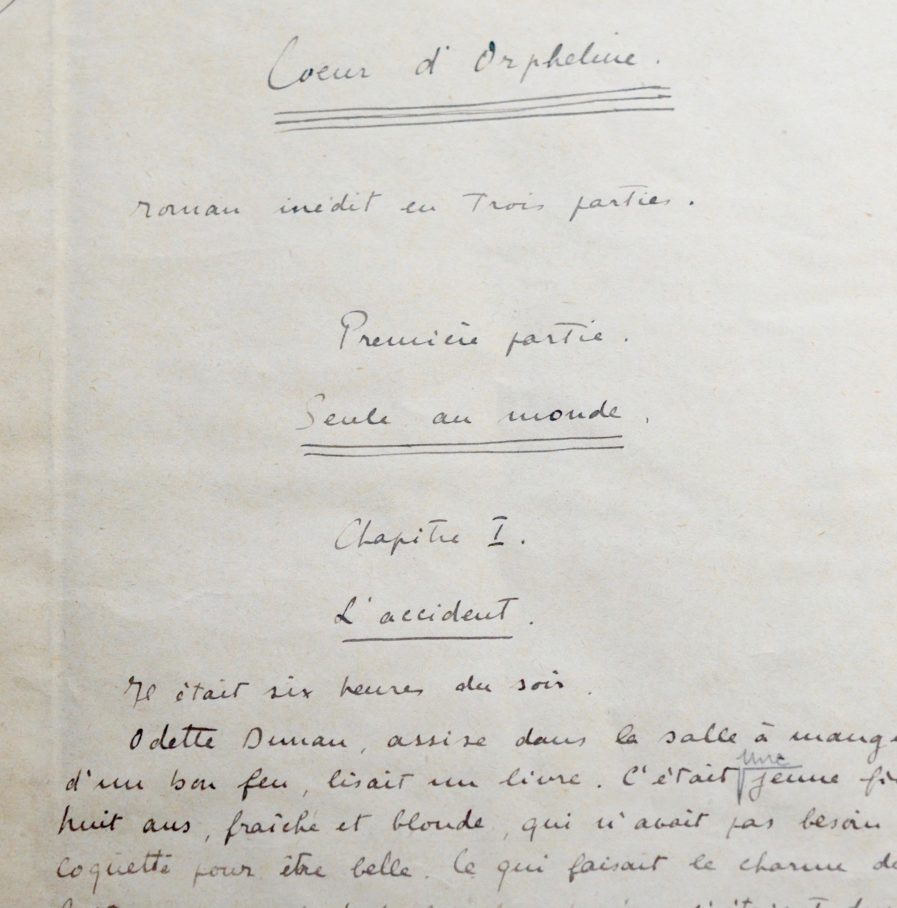 Coeur d'Orpheline.
roman inédit en Trois parties.
Première partie.
Seule au monde.
Chapitre I.
L'accident.
Il était six heures du soir.
Odette Dunan, assise dans la salle à mange
d'un bon feu, lisait un livre. C'était une jeune fi
huit ans, fraîche et blonde, qui n'avait pas besoin
coquette pour être belle. Ce qui faisait le charme de